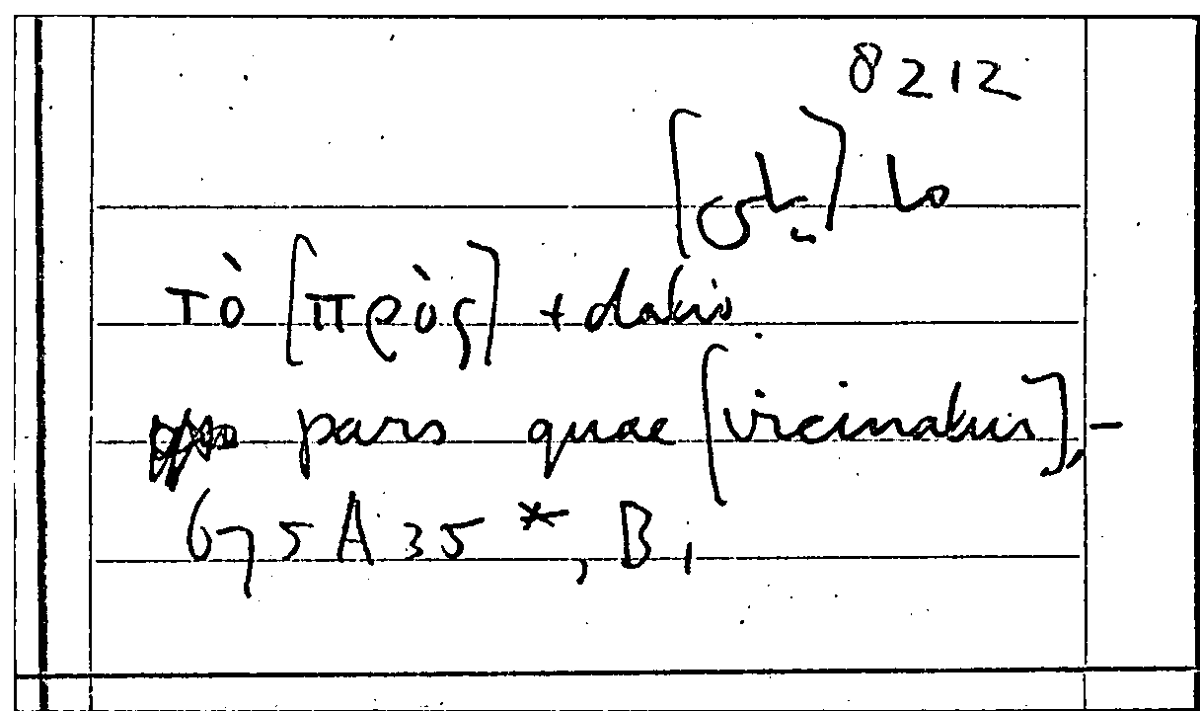 8212
τὸ [πρὸς] + dativo
pars quae [vicinatur], -
675 A 35 *, B 1